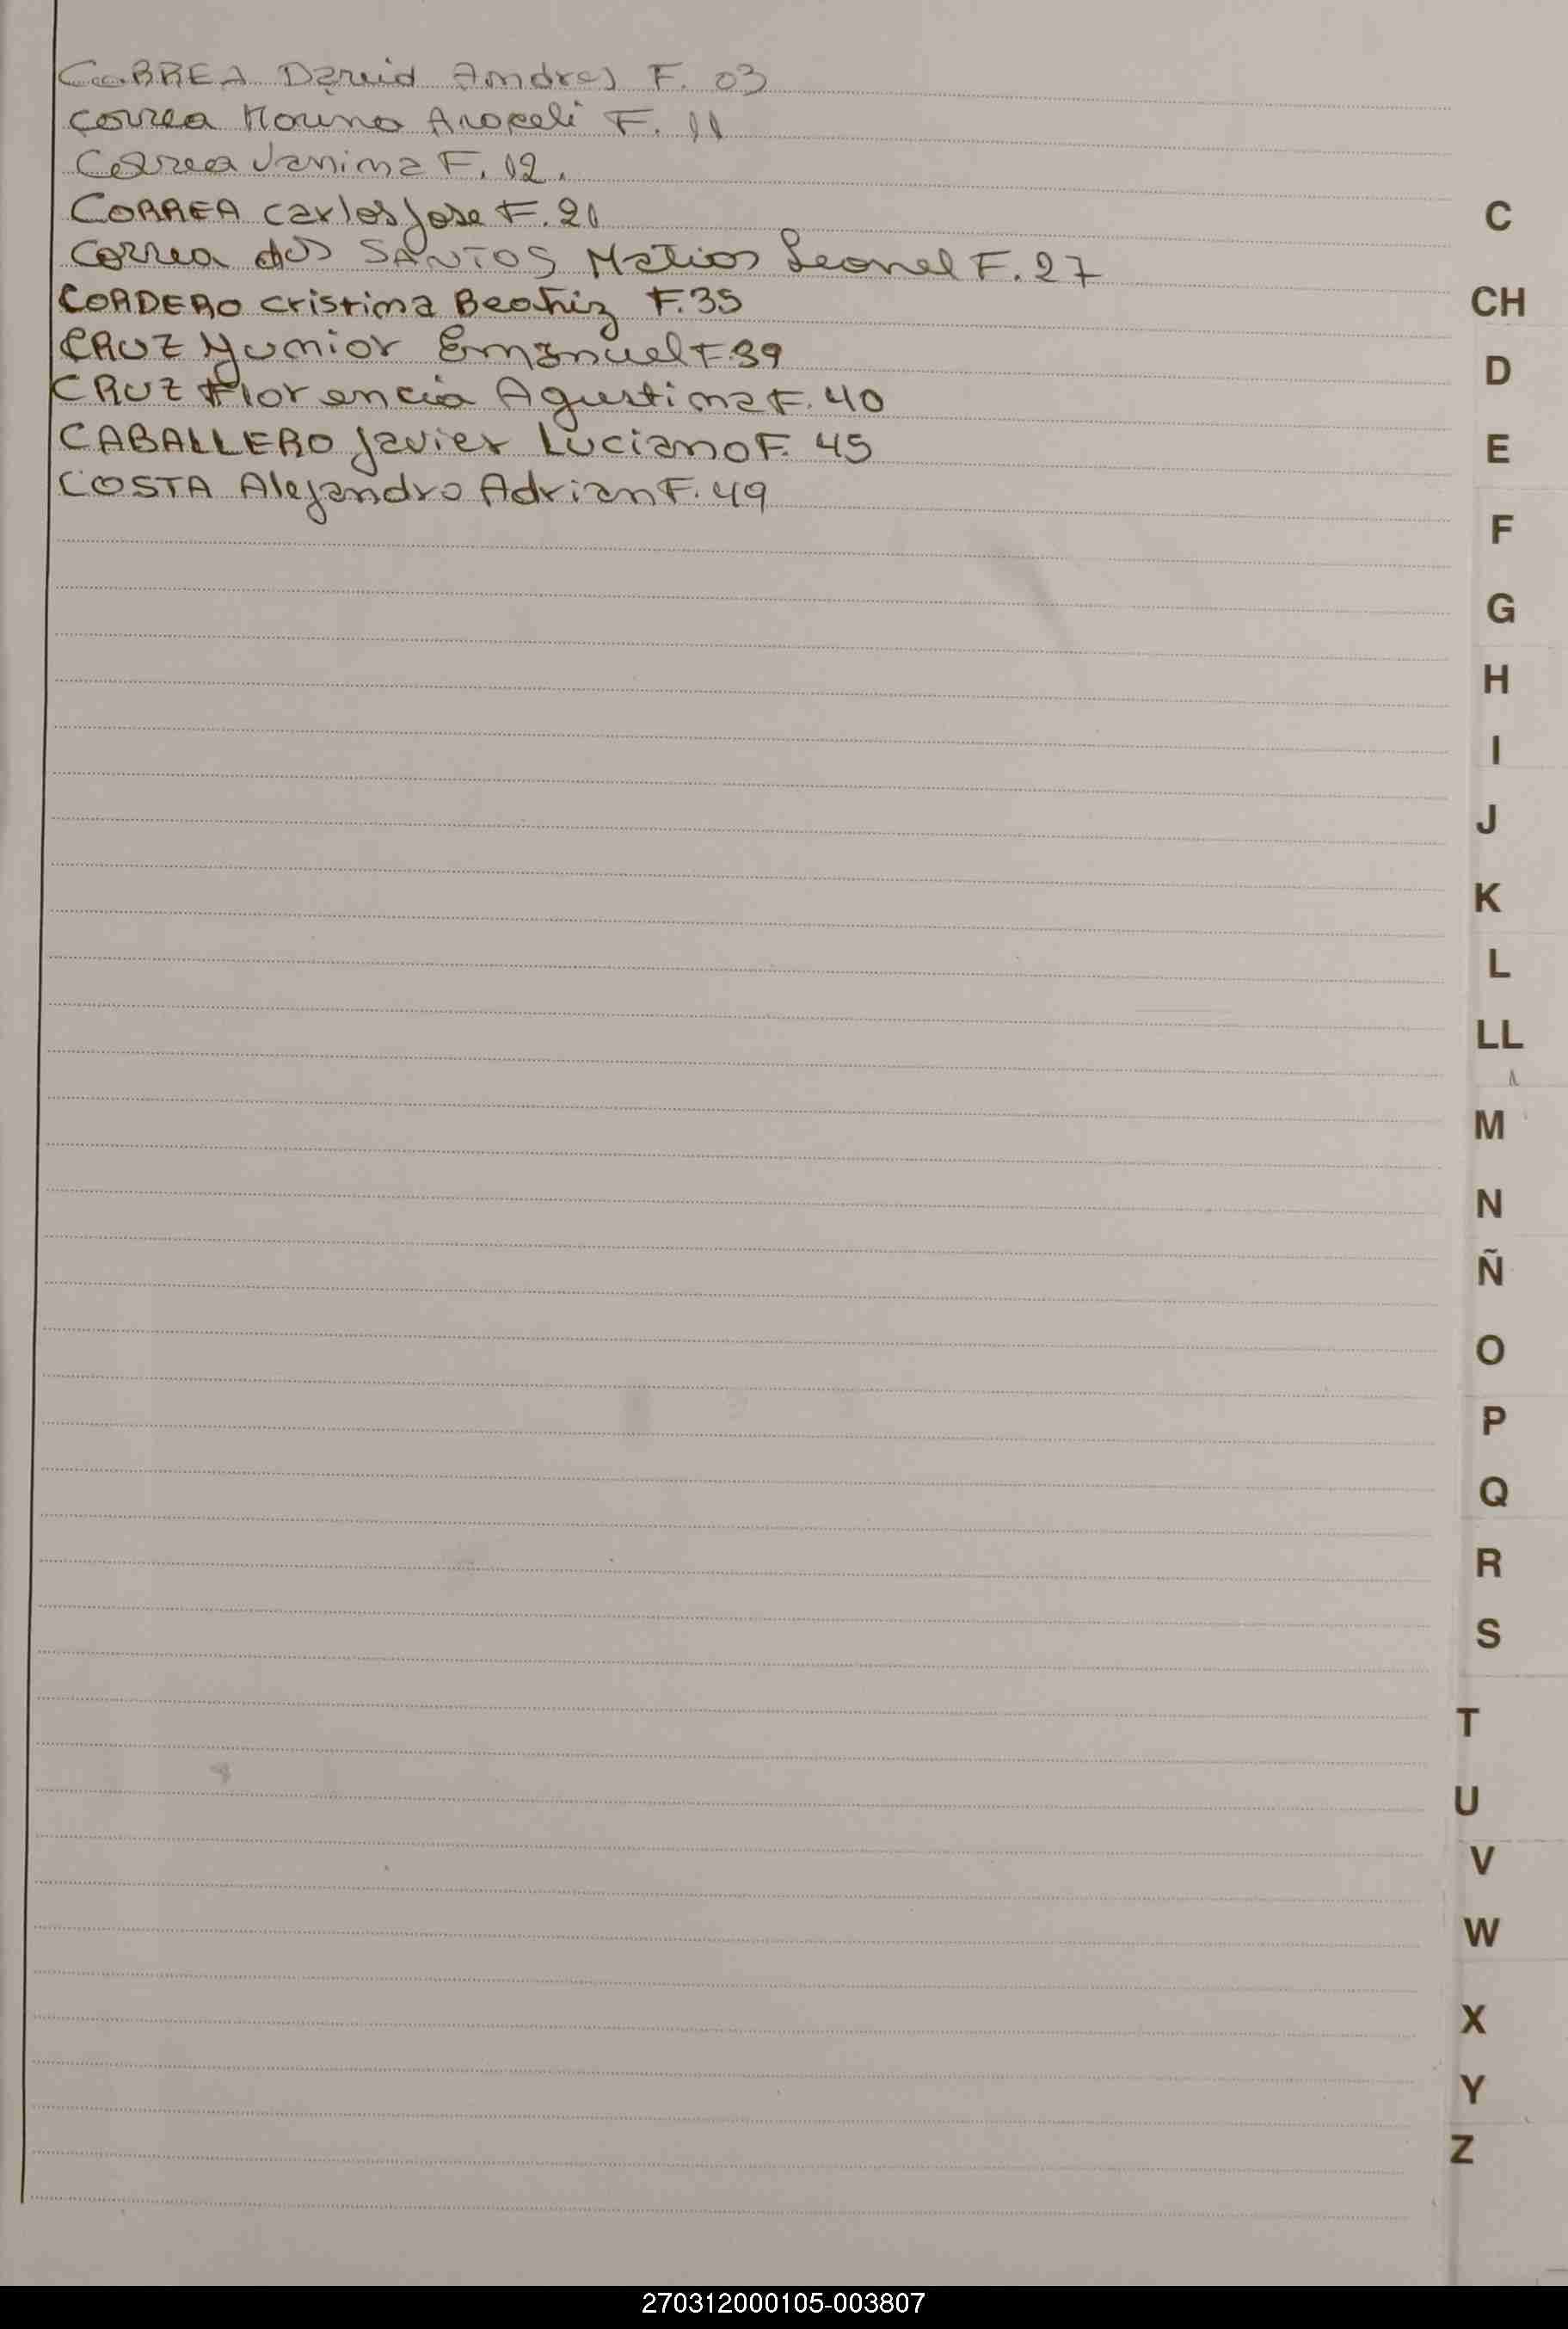 CORREA David Andres F. 03
Correa Morena Araceli F. 11
Correa Janina F. 12.
CORREA Carlos Jose F. 21
Correa dos SANTOS Matias Leonel F. 27
CORDERO Cristina Beatriz F. 35
CRUZ Yunior Emanuel F. 39
CRUZ Florencia Agustina F. 40
CABALLERO Javier Luciano F. 45
COSTA Alejandro Adrian F. 49
C
CH
D
E
F
G
H
I
J
K
L
LL
M
N
Ñ
O
P
Q
R
S
T
U
V
W
X
Y
Z
270312000105-003807